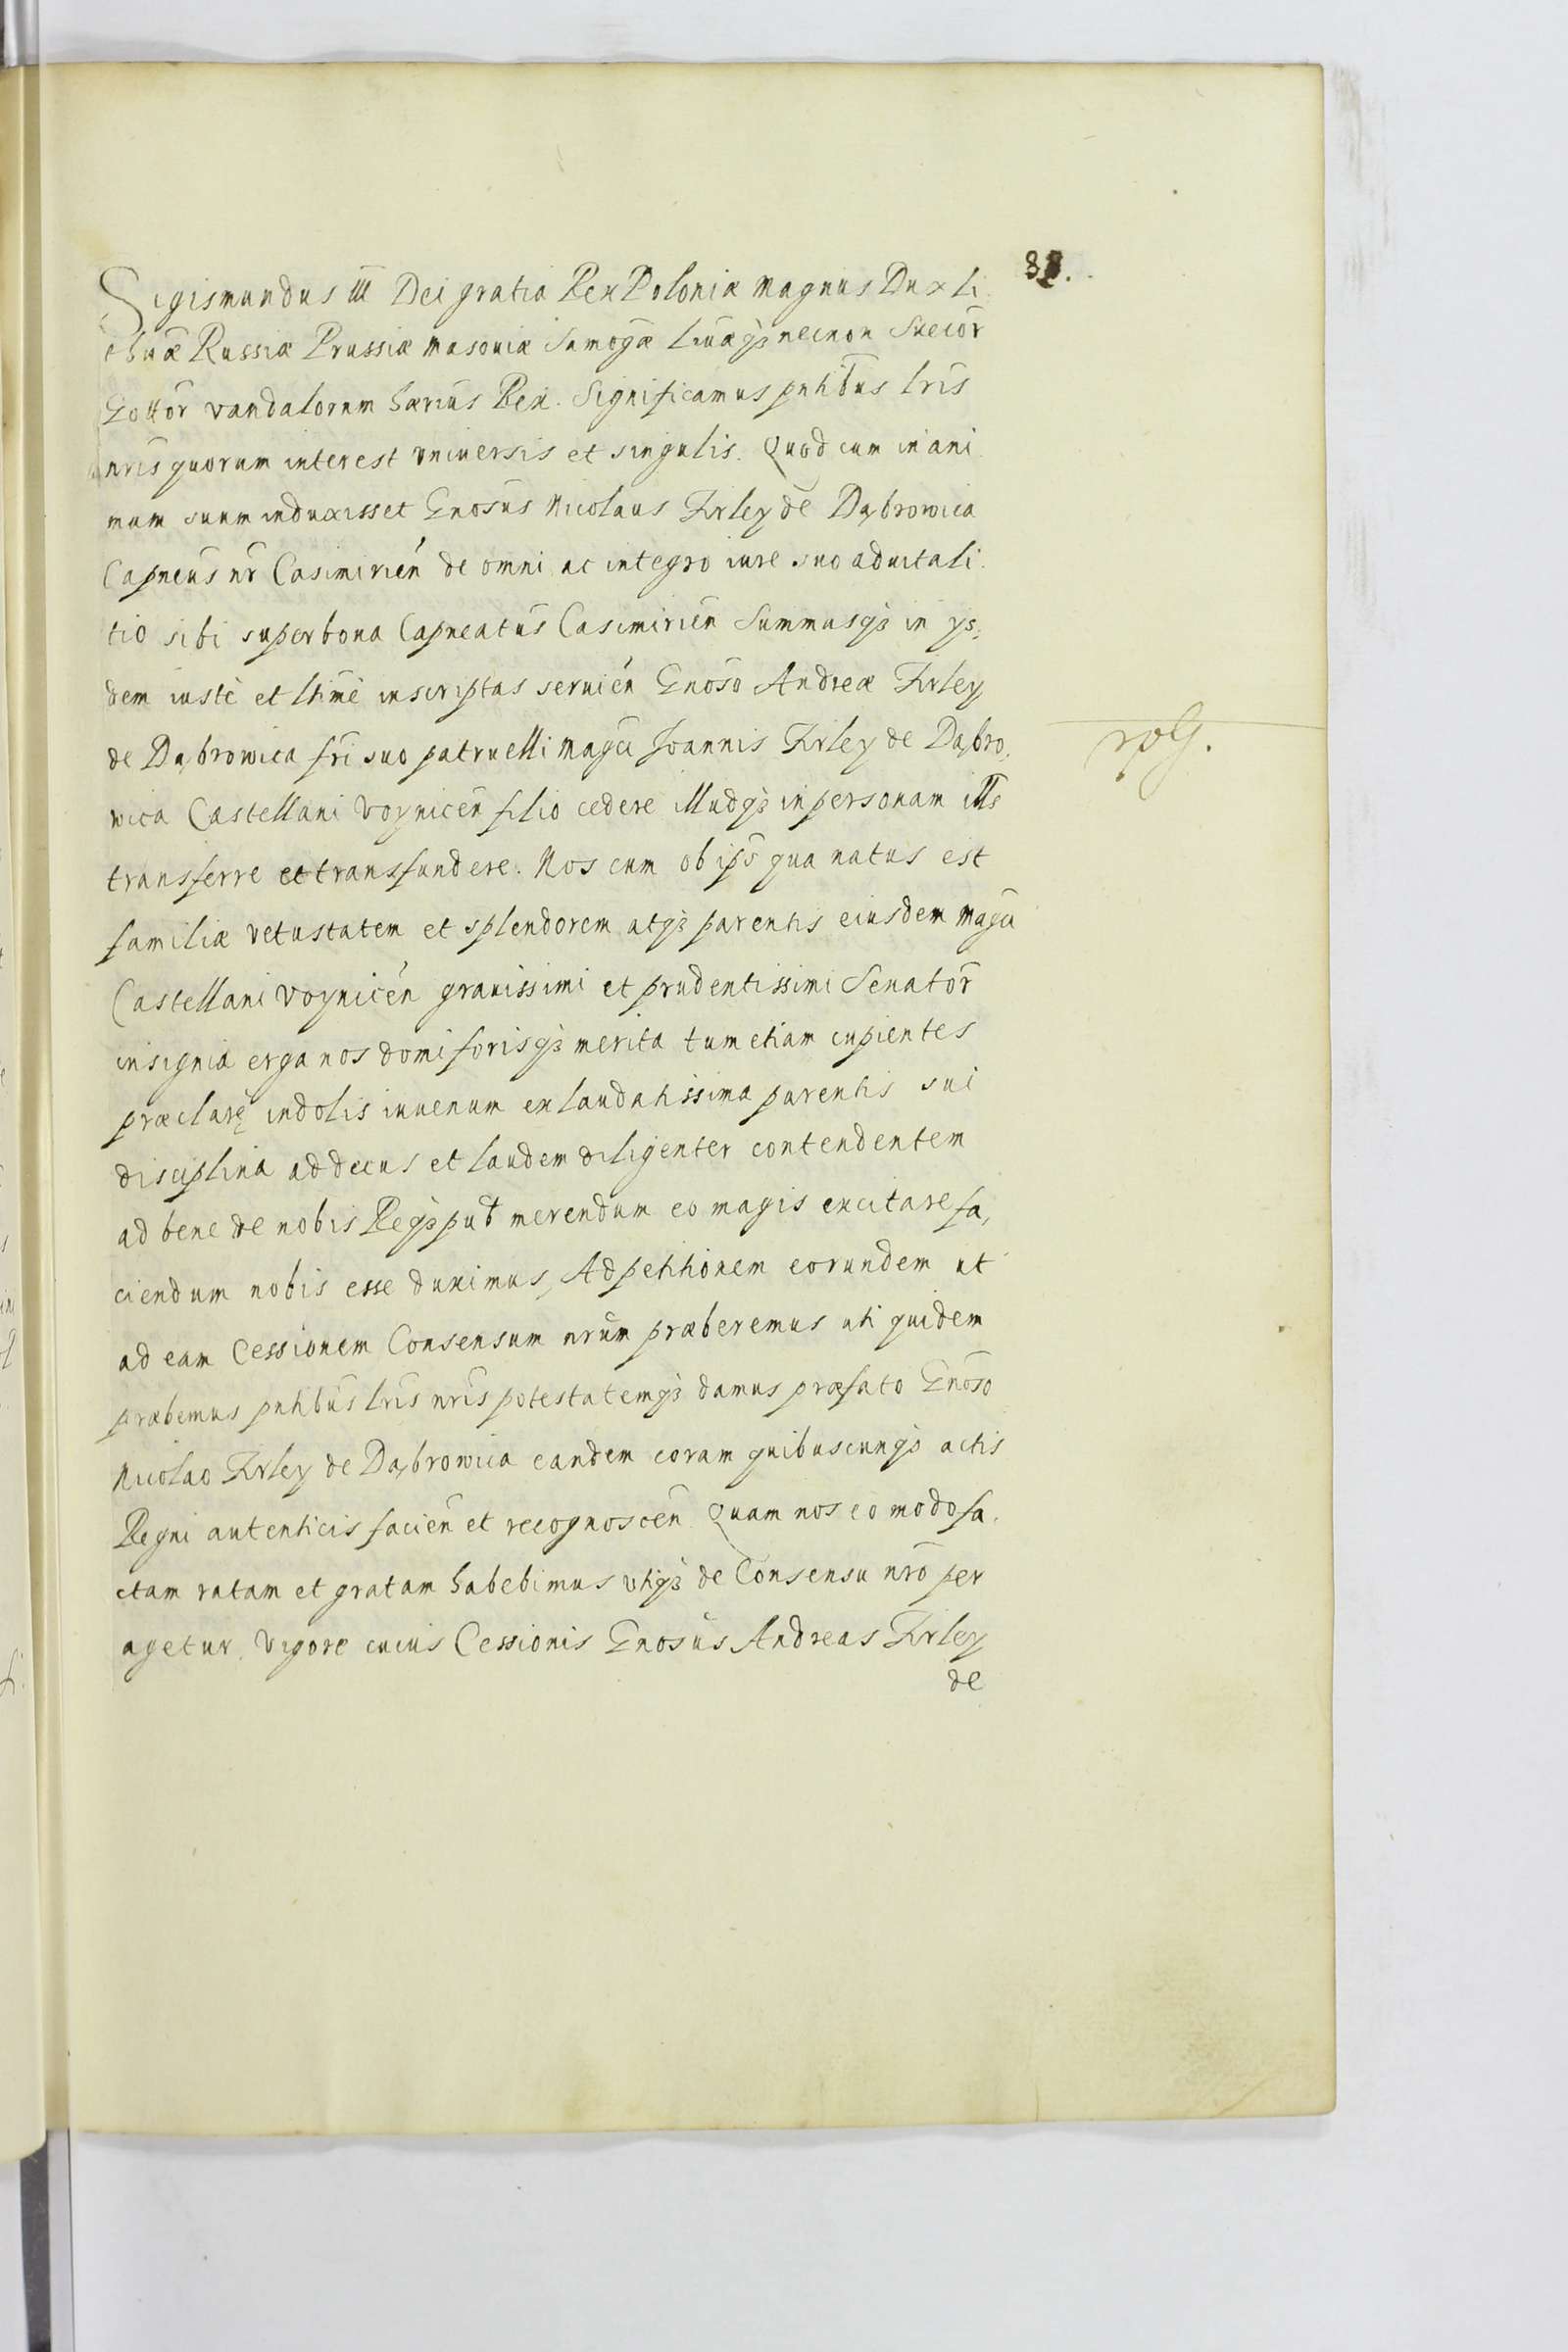 38.
Sigismundus III Dei gratia Rex Poloniæ Magnus Dux Li
thuæ Russiæ Prussiæ Masoviæ Samogæ Livæqȝ necnon Suecor̄
Gottor̄ Vandalorum hærius̄ Rex. Significamus pntibus̄ lris̄
nris̄ quorum interest vniversis et singulis. Quod cum in ani
mum suum induxisset Gnosus̄ Nicolaus Firley de Dąbrowica
Capneus̄ nr̄ Casimirien̄ de omni ac integro iure suo advitali
tio sibi super bona Capneatus̄ Casimirien̄ Summasqȝ in ys,
dem iustè et ltimè inscriptas servien̄ Gnoso̅ Andreæ Firley
de Dąbrowica fri̅ suo patruelli Magci Joannis Firley de Dąbro,
wica Castellani Voynicen̄ filio cedere illudqȝ in personam ills̄
transferre et transfundere. Nos cum ob ips̄ qua natus est
familiæ vetustatem et splendorem atqȝ parentis eiusdem Magci
Castellani Voynicen̄ gravissimi et prudentissimi Senator̄
insignia erga nos domi forisqȝ merita tum etiam cupientes
præclarę indolis iuvenum ex laudatissima parentis sui
disciplina ad decus et laudem diligenter contendentem
ad bene de nobis Reqȝ pub̄ merendum eo magis excitare fa,
ciendum nobis esse duximus, Ad petitionem eorundem ut
ad eam Cessionem Consensum nrum̄ præberemus uti quidem
præbemus pntibus̄ lris̄ nris̄ potestatemqȝ damus præfato Gnoso̅
Nicolao Firley de Dąbrowica eandem coram quibuscunqȝ actis
Regni autenticis facien̄ et recognoscen̄ Quam nos eo modo fa
ctam ratam et gratam habebimus vtiqȝ de Consensu nro̅ per
agetur. Vigore cuius Cessionis Gnosus̄ Andreas Firley
de